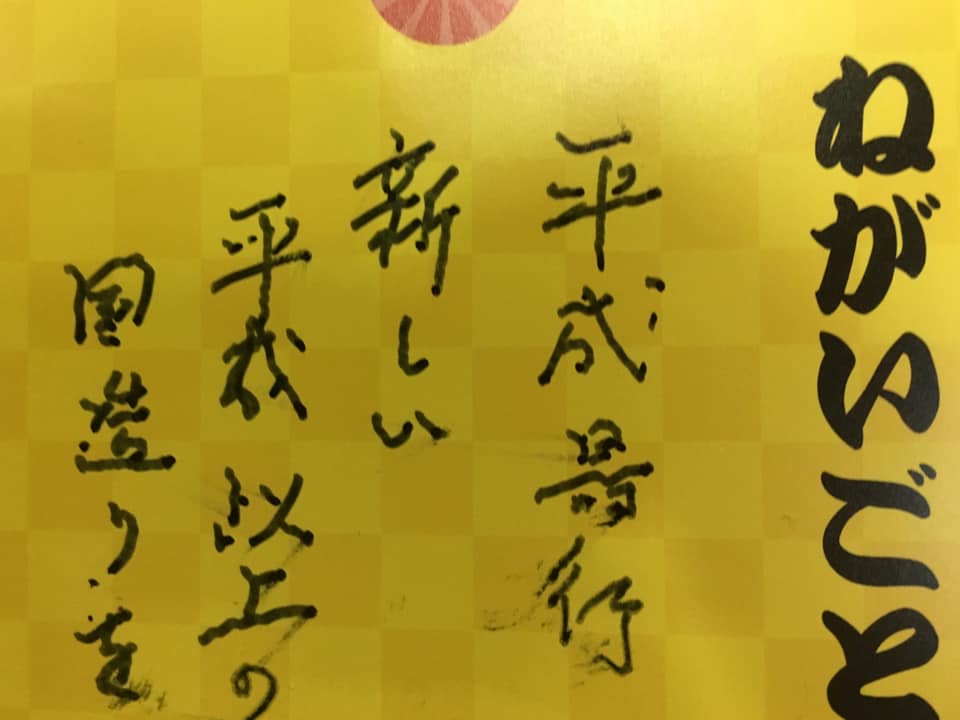 ねがいごと
平成 行
新しい
平成以上の
国造りを